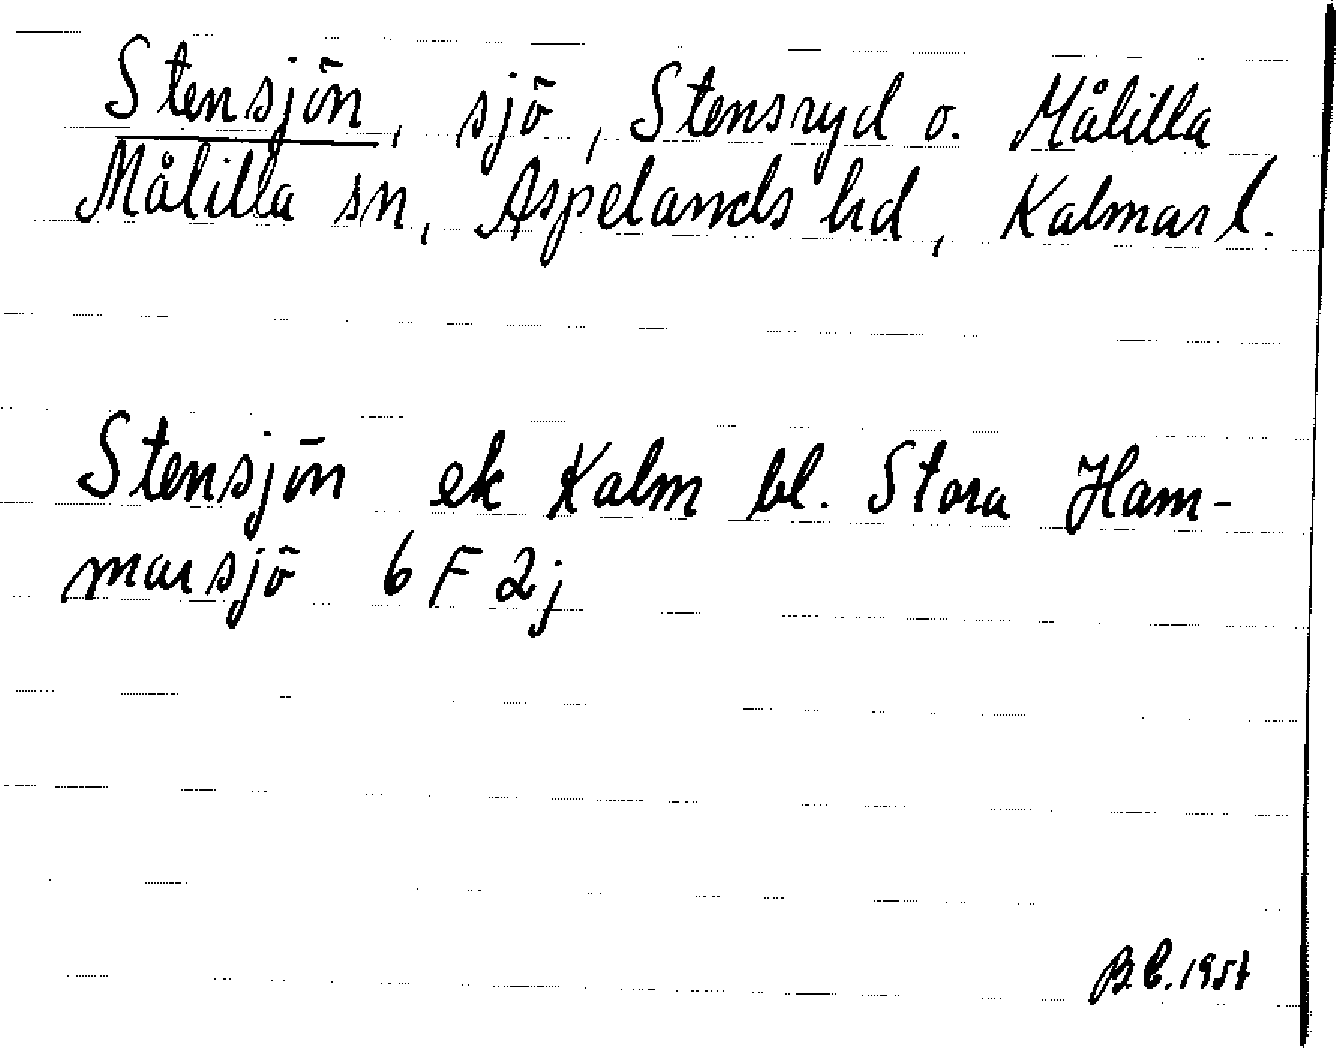 Stensjön, sjö, Stensryd o. Målilla
Målilla sn, Aspelands hd, Kalmar l.
Stensjön ek Kalm bl. Stora Ham-
marsjö 6 F 2j
1957